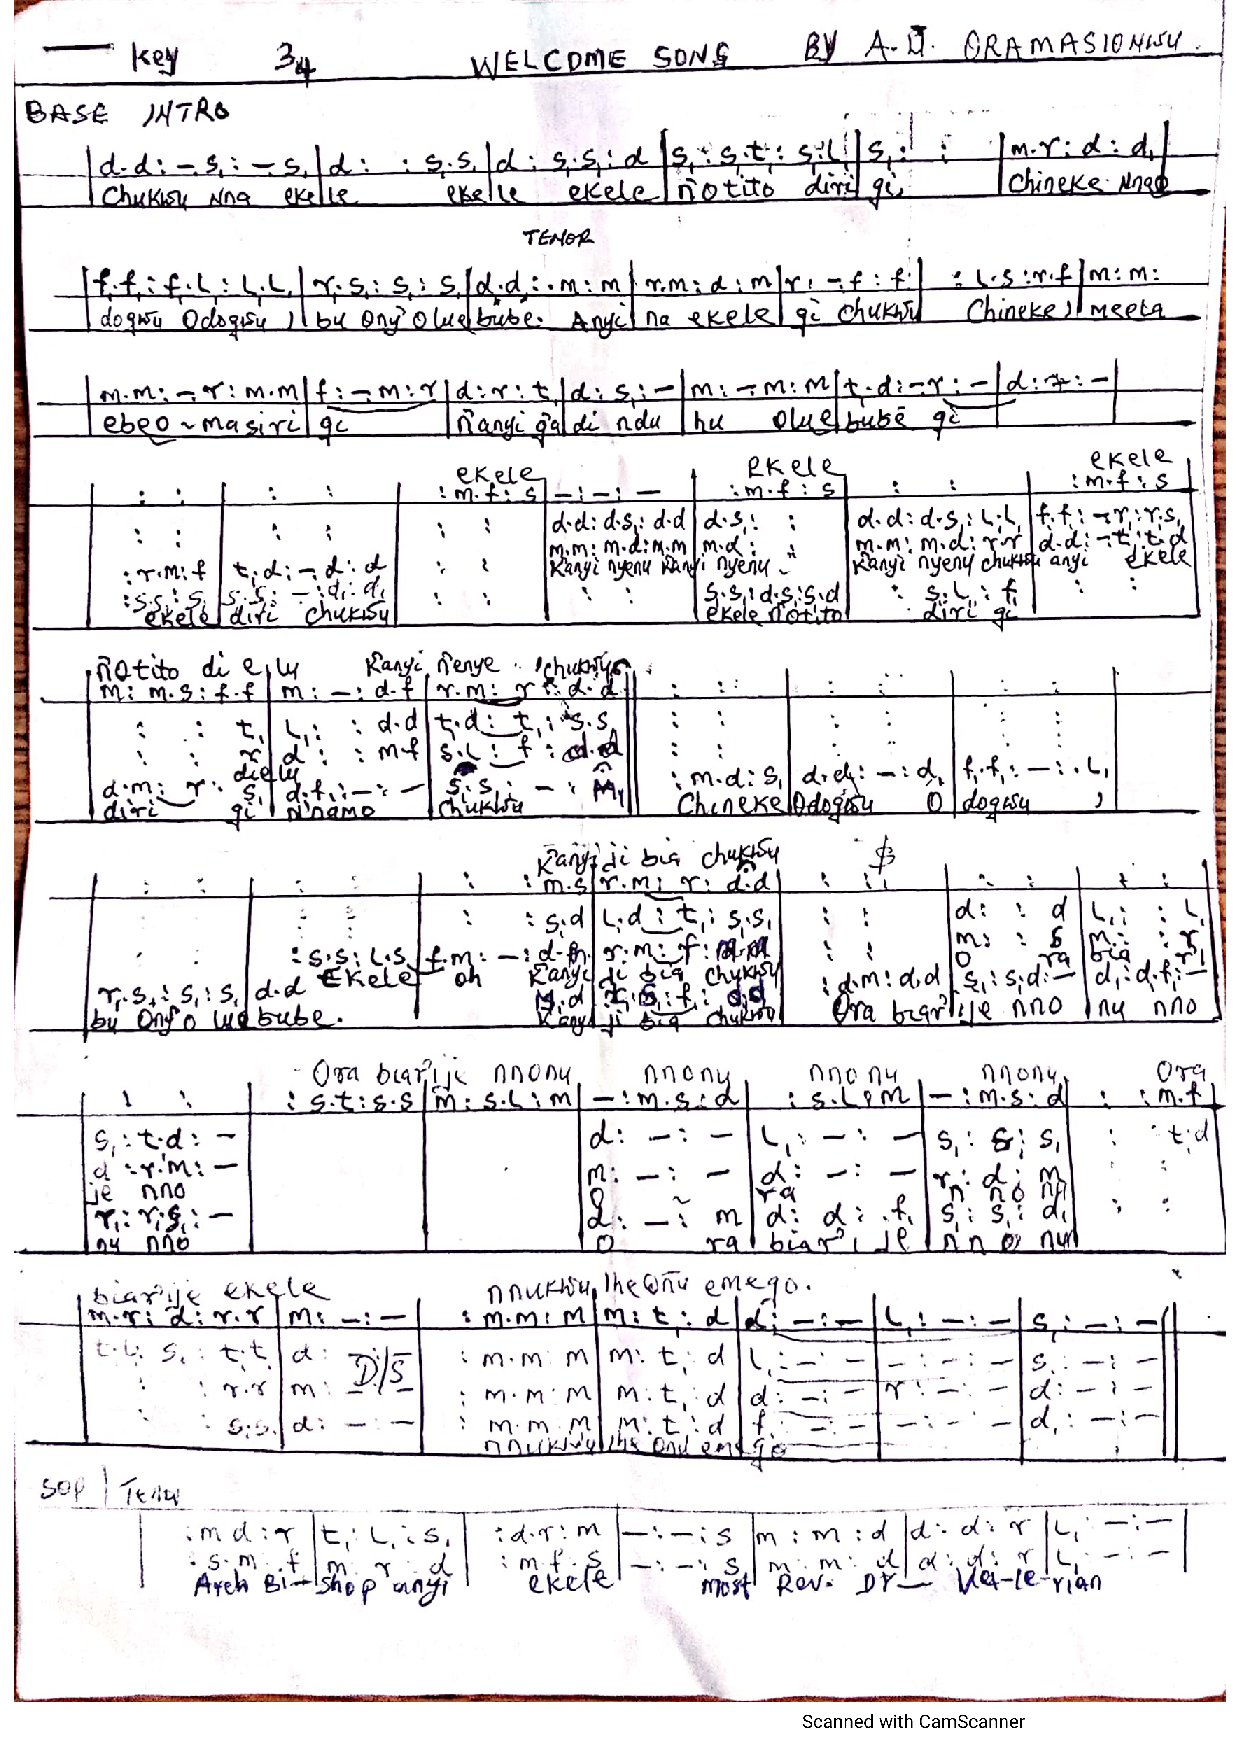 Key 3/4 WELCOME SONG BY A.U. ORAMASIONWU.
BASE INTRO
d.d: – s,: – s,| d: : s,.s,| d: s,.s,: d| s,: s,.t,: s,.L,| s,: : | m.r: d: d,
Chukwu nna ekele ekele ekele ñotito diri gi Chineke nna
TENOR
f,.f,: f,.L,: L,.L,| r,.s,: s,: s,| d.d: .m: m| r.m: d: m| r: – f: f| : L.s: r.f| m: m:
dogwu Odogwu, bu Ony' Oluebube. Anyi na ekele gi Chukwu Chineke, meela
m.m: – r: m.m| f: – m: r| d: r: t,| d: s,: –| m: – m: m| t,.d: – r: –| d: –: –
ebeo ~ masiri gi ñanyi ga di ndu hu Olue bube gi
ekele ekele ekele
: : | : : | : m.f: s| –: –: –| : m.f: s| : : | : m.f: s
: : : : : : d.d: d.s,: d.d d.s,: : d.d: d.s,: L,.L, f,.f,: – r,: r,.s,
m.m: m.d: m.m m.d: : m.m: m.d: r.r d.d: – t,: t,.d
: r.m: f t,.d: – d: d : : Kanyi nyenu Kanyi nyenu Kanyi nyenu chukwu anyi ekele
: s,.s,: s, s,.s,: –: d,.d, : : : : s,.s,: d.s,: s,.d : s,.L,: f, : :
ekele diri chukwu ekele ñotito diri gi
ñotito di e ly Kanyi ñenye chukwu
m: m.s: f.f| m: –: d.f| r.m: r: d.d| : : | : : | : :
: : t,| L,: : d.d| t,.d: t,: s,.s,| : : | : : | : :
: : r| d: : m.f| s,.L,: f: d.d| : :
diely
d.m: r: s,| d.f,: –: –| s,.s,: –: m,| : m.d: s,| d.d,: –: d,| f,.f,: –: .L,
diri gi ninamo chukwu Chineke Odogwu O dogwu ,
Kanyi ji bia chukwu
: : | : : | : : m.s| r.m: r: d.d| : : | : : | : :
: : : : : : s,.d L,.d: t,: s,.s, : : d: : d L,: : L,
: s.s: L.s f.m: –: : : m: : s m: : r
EKele oh Kanyi ji bia chukwu O ra bia
r,.s,: s,: s, d.d : d.m: d.d s,: s,.d: – d,: d,.f,: –
bu Ony' o lue bube. Kanyi ji bia chukwu Ora biar'ije nno nu nno
Ora biar'ije nnonu nnonu nnonu nnonu Ora
: : | : s.t: s.s| m: s.L: m| –: m.s: d| : s.L: m| –: m.s: d| : : m.f
s,: t,.d: – d: –: – L,: –: – s,: s,: s, : t,.d
d: r.m: – m: –: – d: –: – r: d: m : :
je nno O ra n no nu
r,: r,.s,: – d: –: m d: d: .f, s,: s,: d, : :
nu nno O ra biar'i je nno nu
biar'ije ekele nnukwu ihe onu emego.
m.r: d: r.r| m: –: –| : m.m: m| m: t,: d| d: –: –| L,: –: –| s,: –: –
t,.L, s,: t,.t, d: D/S : m.m m m: t, d L,: –: – –: –: – s,: –: –
: : r.r m: : m.m m m. t, d d: –: – r: –: – d: –: –
: : s,.s, d: –: – : m.m m m: t,: d f,: –: – –: –: – d,: –: –
nnukwu ihe onu emego
SOP | Tenu
: m d: r| t,: L,: s,| : d.r: m| –: –: s| m: m: d| d: d: r| L,: –: –
: s. m. f| m r d| : m f. s| –: –: s| m. m: d| d: d: r| L, –: –
Arch Bi – shop anyi ekele most Rev. Dr — Va-le-rian
Scanned with CamScanner